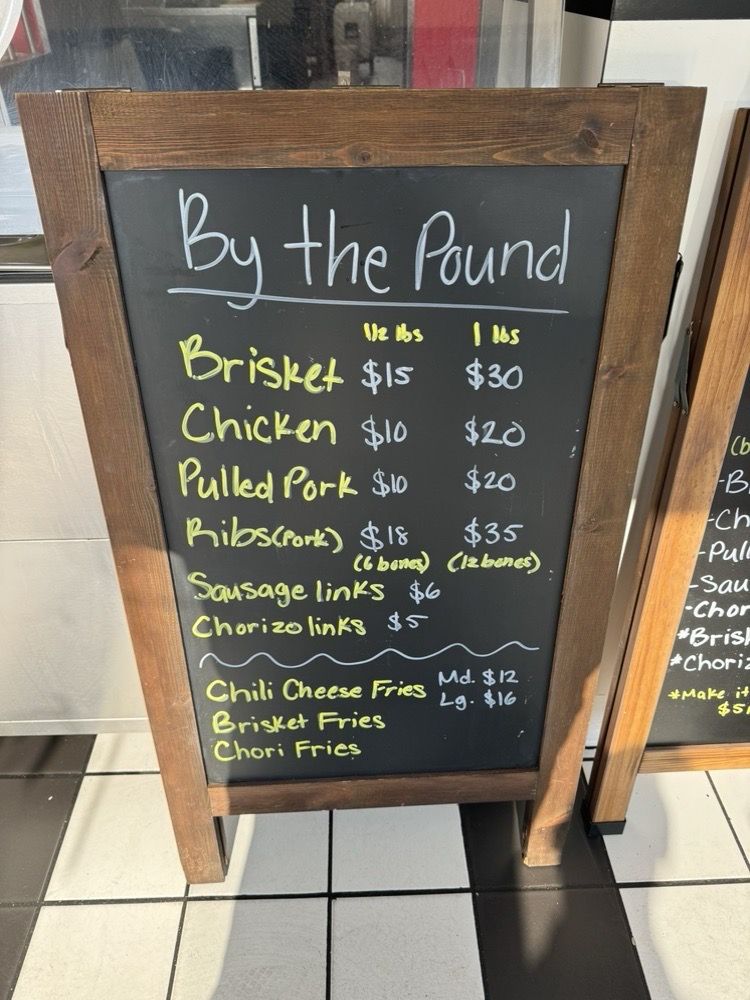 By the Pound
1/2 lbs 1 lbs
Brisket $15 $30
Chicken $10 $20
Pulled Pork $10 $20
Ribs(Pork) $18 $35
(6 bones) (12 bones)
Sausage links $6
Chorizo links $5
Chili Cheese Fries Md. $12
Lg. $16
Brisket Fries
Chori Fries
(b
-B
-Ch
-Pull
-Sau
-Chor
*Brisk
*Choriz
*Make it
$5